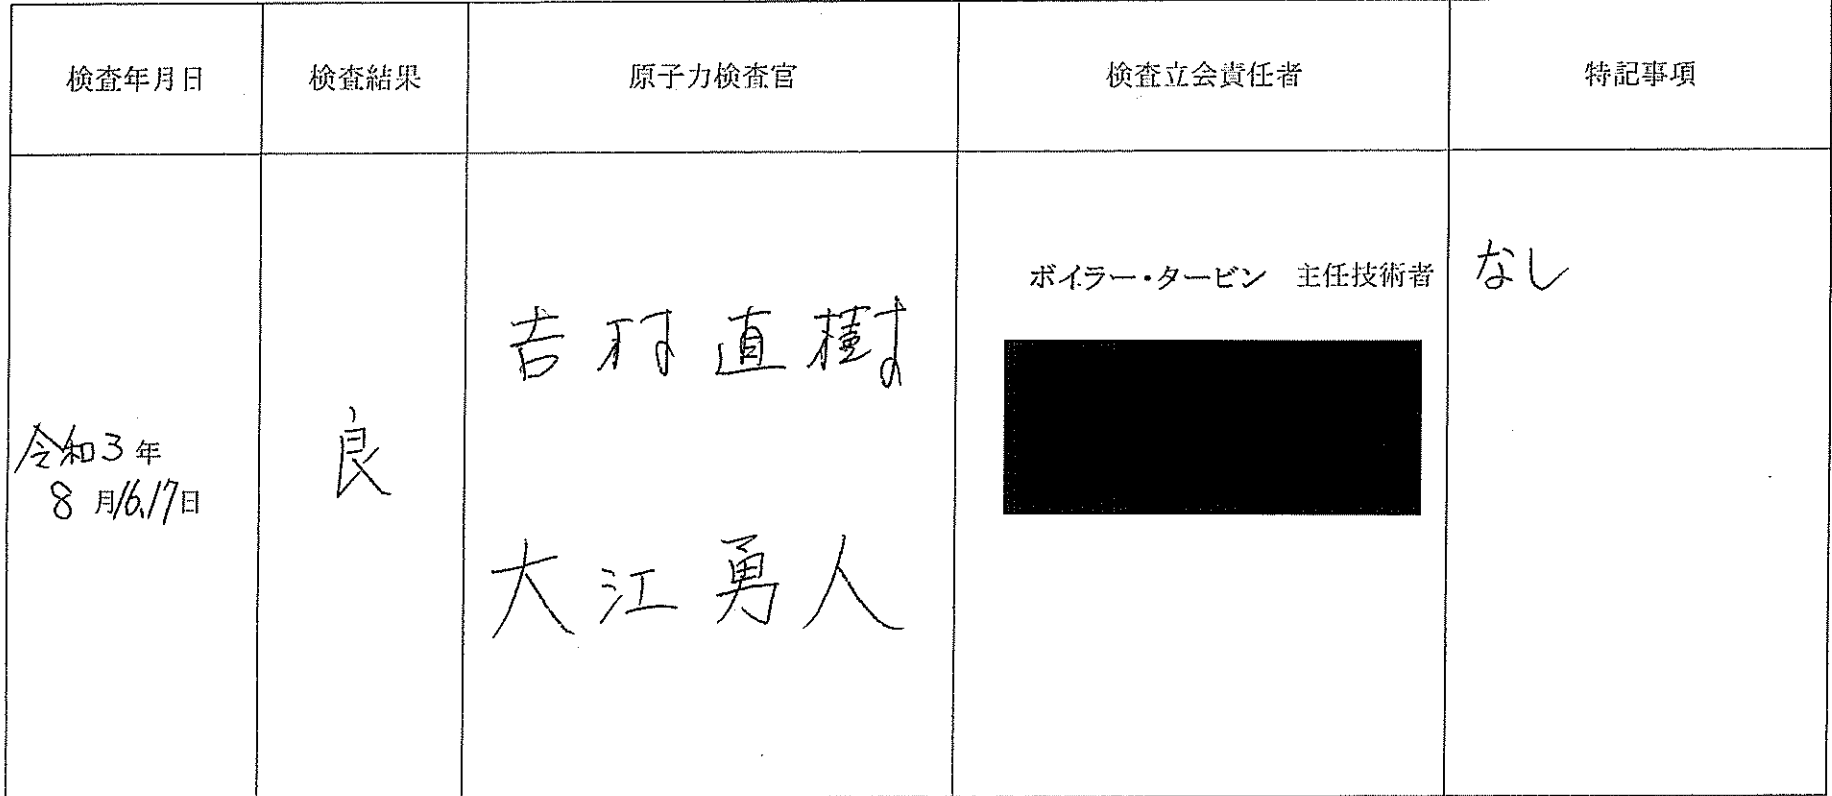 検査年月日 検査結果 原子力検査官 検査立会責任者 特記事項
令和3年
8月16,17日
良
吉村直樹
大江勇人
ボイラー・タービン 主任技術者
なし